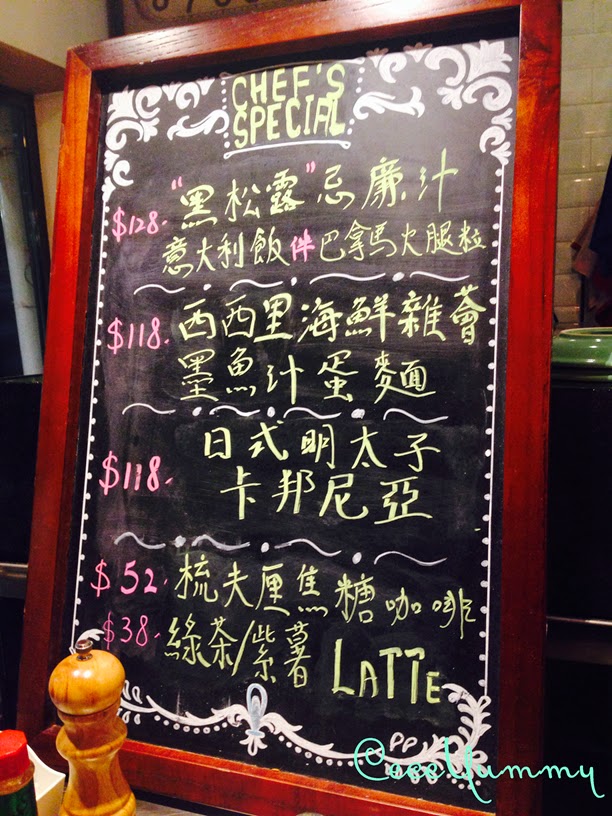 CHEF'S
SPECIAL
"黑松露"忌廉汁
$128.
意大利飯件巴拿馬火腿粒
$118. 西西里海鮮雜薈
墨魚汁蛋麵
日式明太子
$118.
卡邦尼亞
$52. 梳夫厘焦糖咖啡
$38. 綠茶/紫薯 LATTE
PP
CeeeYummy